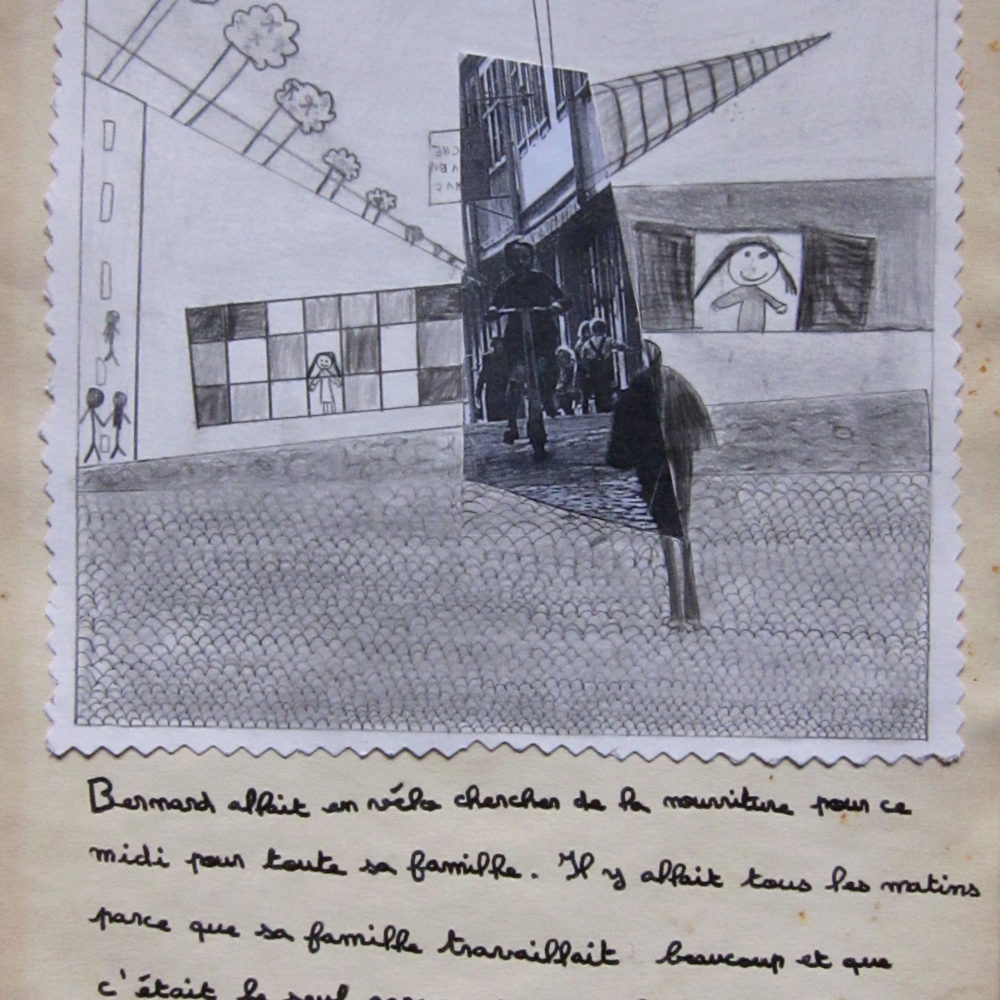 Bernard allait en vélo chercher de la nourriture pour ce
midi pour toute sa famille. Il y allait tous les matins
parce que sa famille travaillait beaucoup et que
c'était le seul